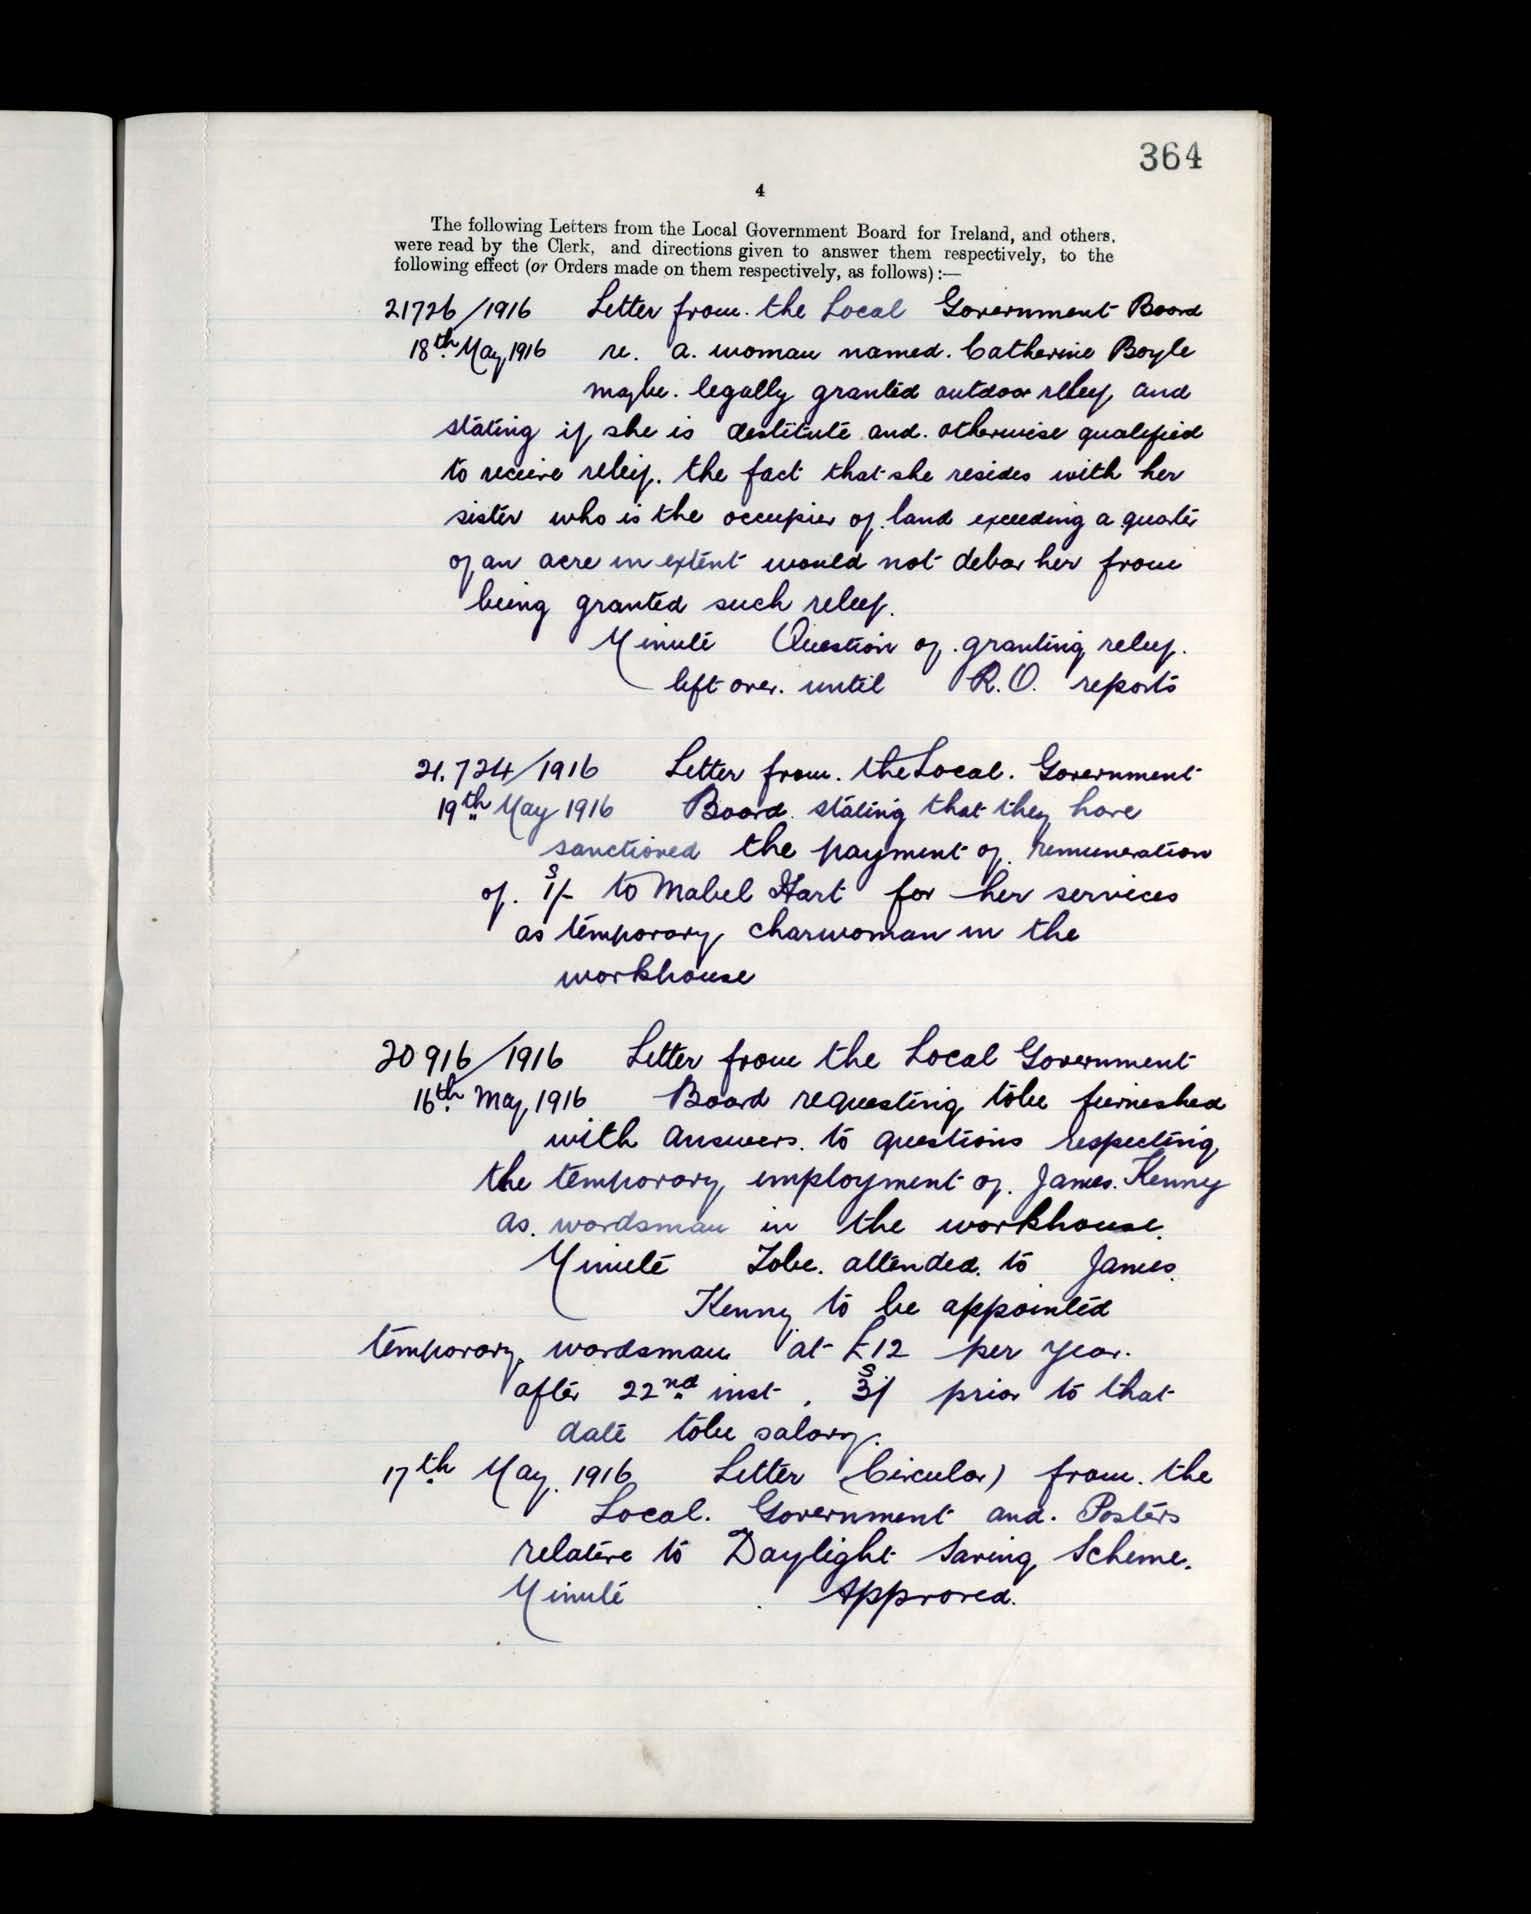 364
4
The following Letters from the Local Government Board for Ireland, and others,
were read by the Clerk, and directions given to answer them respectively, to the
following effect (or Orders made on them respectively, as follows):—
21726/1916 Letter from. the Local Government Board
18th May, 1916 re. a. woman named. Catherine Boyle
maybe. legally granted outdoor relief and
stating if she is destitute and. otherwise qualified
to receive relief. the fact that she resides with her
sister who is the occupier of land exceeding a quarter
of an acre in extent would not debar her from
being granted such relief.
Minute Question of granting relief.
left over. until R.O. reports
21.724/1916 Letter from. the Local. Government
19th May 1916 Board stating that they have
sanctioned the payment of remuneration
of. 1s/- to Mabel Hart for her services
as temporary charwoman in the
workhouse
20916/1916 Letter from the Local Government
16th May, 1916 Board requesting tobe furnished
with answers. to questions respecting
the temporary employment of James. Kenny
as. wardsman in the workhouse.
Minute Tobe. attended. to James.
Kenny to be appointed
temporary wardsman at £12 per year.
after 22nd inst. 3s/ prior to that
date tobe salary.
17th May. 1916 Letter (Circular) from. the
Local. Government and. Posters
relative to Daylight Saving Scheme.
Minute Approved.